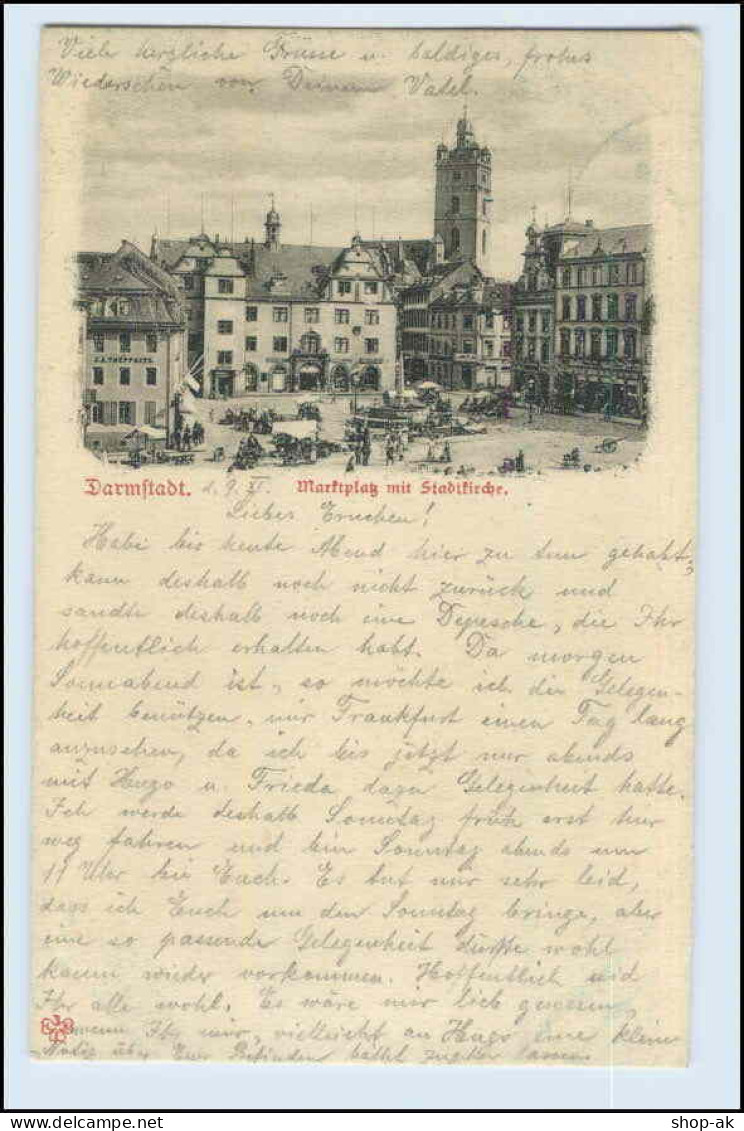 Viele herzliche Grüsse u. baldiges, frohes
Wiedersehen von Deinem Vater.
Darmstadt. d. 9. XI. Marktplatz mit Stadtkirche.
Lieber Ernchen!
Habe bis heute Abend hier zu tun gehabt,
kann deshalb noch nicht zurück und
sandte deshalb noch eine Depesche, die Ihr
hoffentlich erhalten habt. Da morgen
Sonnabend ist, so möchte ich die Gelegen-
heit benützen, mir Frankfurt einen Tag lang
anzusehen, da ich bis jetzt nur abends
mit Hugo u. Frieda dazu Gelegenheit hatte.
Ich werde deshalb Sonntag früh erst hier
weg fahren und bin Sonntag abends um
11 Uhr bei Euch. Es tut mir sehr leid,
dass ich Euch um den Sonntag bringe, aber
eine so passende Gelegenheit dürfte wohl
kaum wieder vorkommen. Hoffentlich seid
Ihr alle wohl. Es wäre mir lieb gewesen,
wenn Ihr mir, vielleicht an Hugo eine kleine
Notiz über Euer Befinden hättet zugehen lassen.
shop-ak